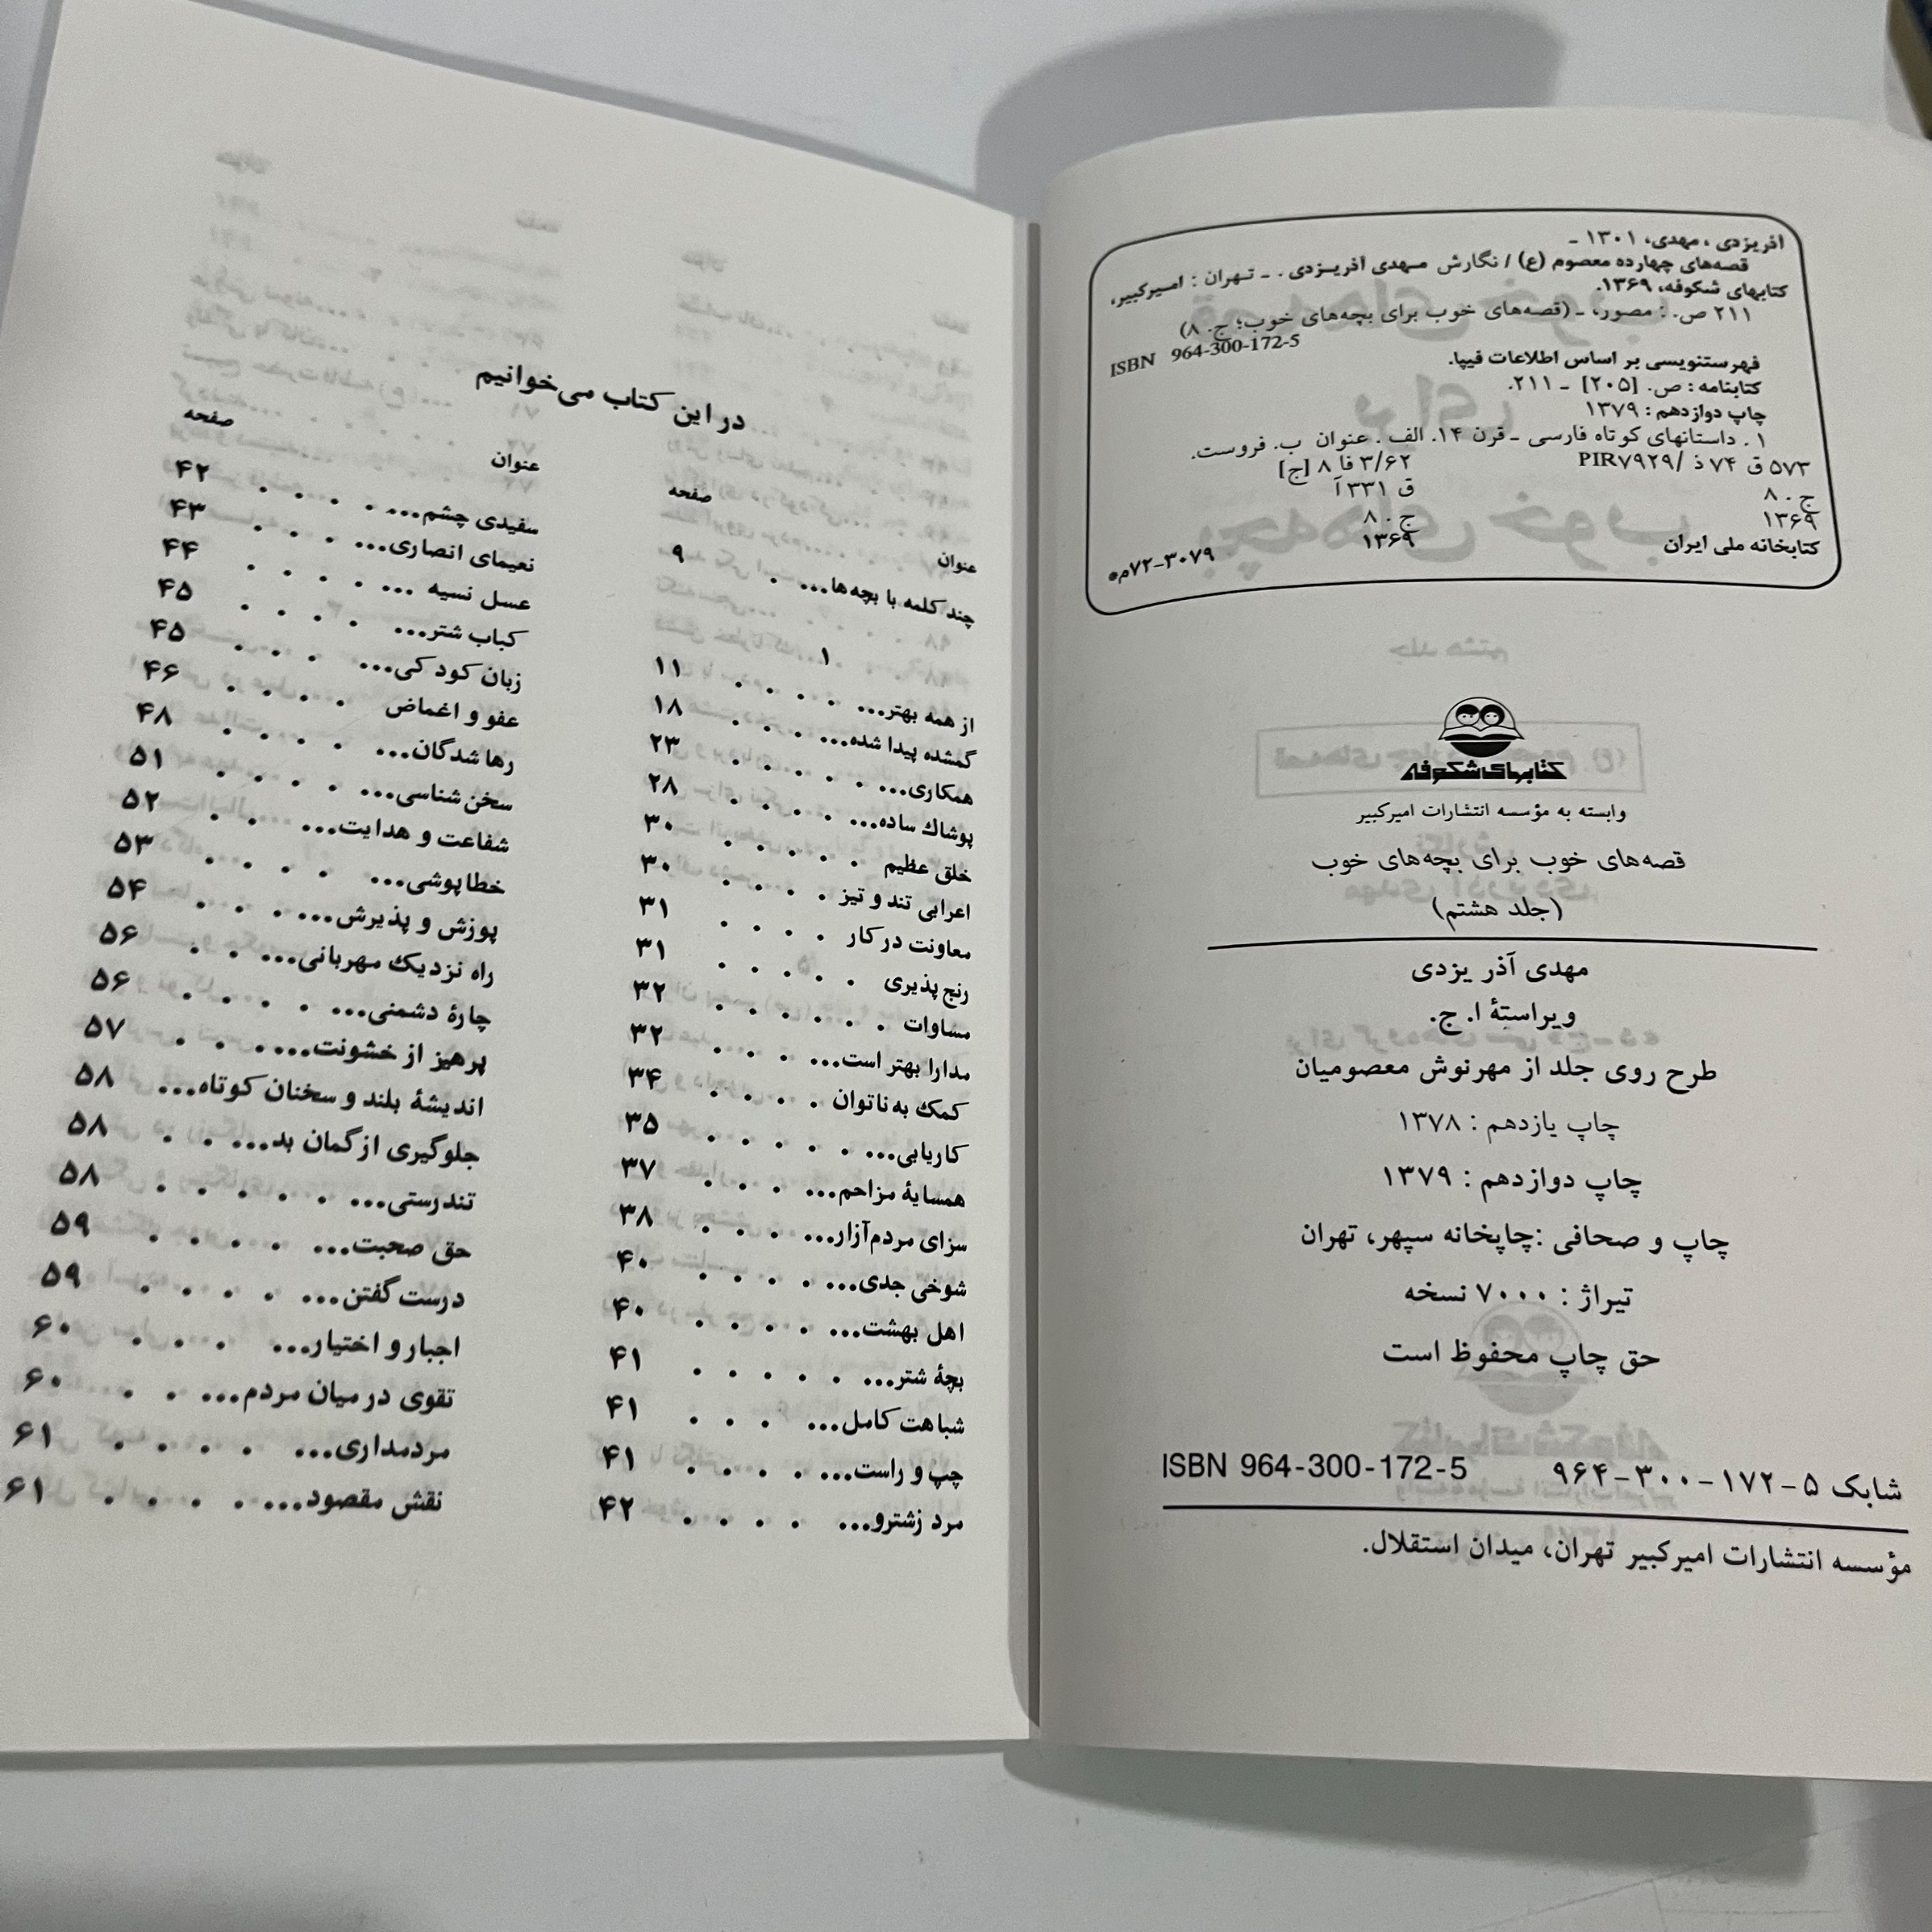 آذریزدی، مهدی، ۱۳۰۱ ـ
قصه‌های چهارده معصوم (ع) / نگارش مهدی آذریزدی. ـ تهران : امیرکبیر،
کتابهای شکوفه، ۱۳۶۹.
۲۱۱ ص. : مصور، ـ (قصه‌های خوب برای بچه‌های خوب؛ ج. ۸)
ISBN 964-300-172-5
فهرستنویسی بر اساس اطلاعات فیپا.
کتابنامه : ص. [۲۰۵] ـ ۲۱۱.
چاپ دوازدهم : ۱۳۷۹
۱. داستانهای کوتاه فارسی ـ قرن ۱۴. الف. عنوان ب. فروست.
۵۷۳ ق ۷۴ ذ /PIR۷۹۲۹ ۳/۶۲ فا ۸ [ج]
ق ۳۳۱ آ
ج. ۸ ج. ۸
۱۳۶۹ ۱۳۶۹
کتابخانه ملی ایران ۳۰۷۹-۷۲م*
کتابهای شکوفه
وابسته به مؤسسه انتشارات امیرکبیر
قصه‌های خوب برای بچه‌های خوب
(جلد هشتم)
مهدی آذر یزدی
ویراستهٔ ا. ج.
طرح روی جلد از مهرنوش معصومیان
چاپ یازدهم : ۱۳۷۸
چاپ دوازدهم : ۱۳۷۹
چاپ و صحافی :چاپخانه سپهر، تهران
تیراژ : ۷۰۰۰ نسخه
حق چاپ محفوظ است
شابک ۵-۱۷۲-۳۰۰-۹۶۴ ISBN 964-300-172-5
مؤسسه انتشارات امیرکبیر تهران، میدان استقلال.
در این کتاب می‌خوانیم
عنوان صفحه
چند کلمه با بچه‌ها... . ۹
۱
از همه بهتر... . . . . ۱۱
گمشده پیدا شده... . . . ۱۸
همکاری... . . . . . ۲۳
پوشاك ساده... . . . . ۲۸
خلق عظیم . . . . . ۳۰
اعرابی تند و تیز . . . . ۳۰
معاونت در کار . . . . ۳۱
رنج پذیری . . . . . ۳۱
مساوات . . . . . . ۳۲
مدارا بهتر است... . . . ۳۲
کمك به ناتوان . . . . ۳۴
کاریابی... . . . . . ۳۵
همسایهٔ مزاحم... . . . ۳۷
سزای مردم‌آزار... . . . ۳۸
شوخی جدی... . . . . ۴۰
اهل بهشت... . . . . ۴۰
بچهٔ شتر... . . . . . ۴۱
شباهت کامل... . . . ۴۱
چپ و راست... . . . . ۴۱
مرد زشترو... . . . . ۴۲
عنوان صفحه
سفیدی چشم... . . . . ۴۲
نعیمای انصاری... . . . ۴۳
عسل نسیه ... . . . . ۴۴
کباب شتر... . . . . ۴۵
زبان کودکی... . . . ۴۵
عفو و اغماض . . . . ۴۶
رها شدگان... . . . . ۴۸
سخن شناسی... . . . . ۵۱
شفاعت و هدایت... . . ۵۲
خطاپوشی... . . . . ۵۳
پوزش و پذیرش... . . . ۵۴
راه نزدیك مهربانی... . . ۵۶
چارهٔ دشمنی... . . . . ۵۶
پرهیز از خشونت... . . . ۵۷
اندیشهٔ بلند و سخنان کوتاه... ۵۸
جلوگیری از گمان بد... . . ۵۸
تندرستی... . . . . . ۵۸
حق صحبت... . . . . ۵۹
درست گفتن... . . . . ۵۹
اجبار و اختیار... . . . ۶۰
تقوی در میان مردم... . . ۶۰
مردمداری... . . . . ۶۱
نقش مقصود... . . . . ۶۱